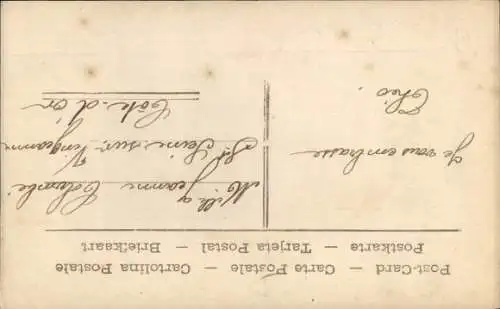 Post-Card — Carte Postale — Cartolina Postale
Postkarte — Tarjeta Postal — Briefkaart
Je vous embrasse
Théo.
Mlle
Jeanne Colombé
St Seine sur Vingeanne
Côte-d'or